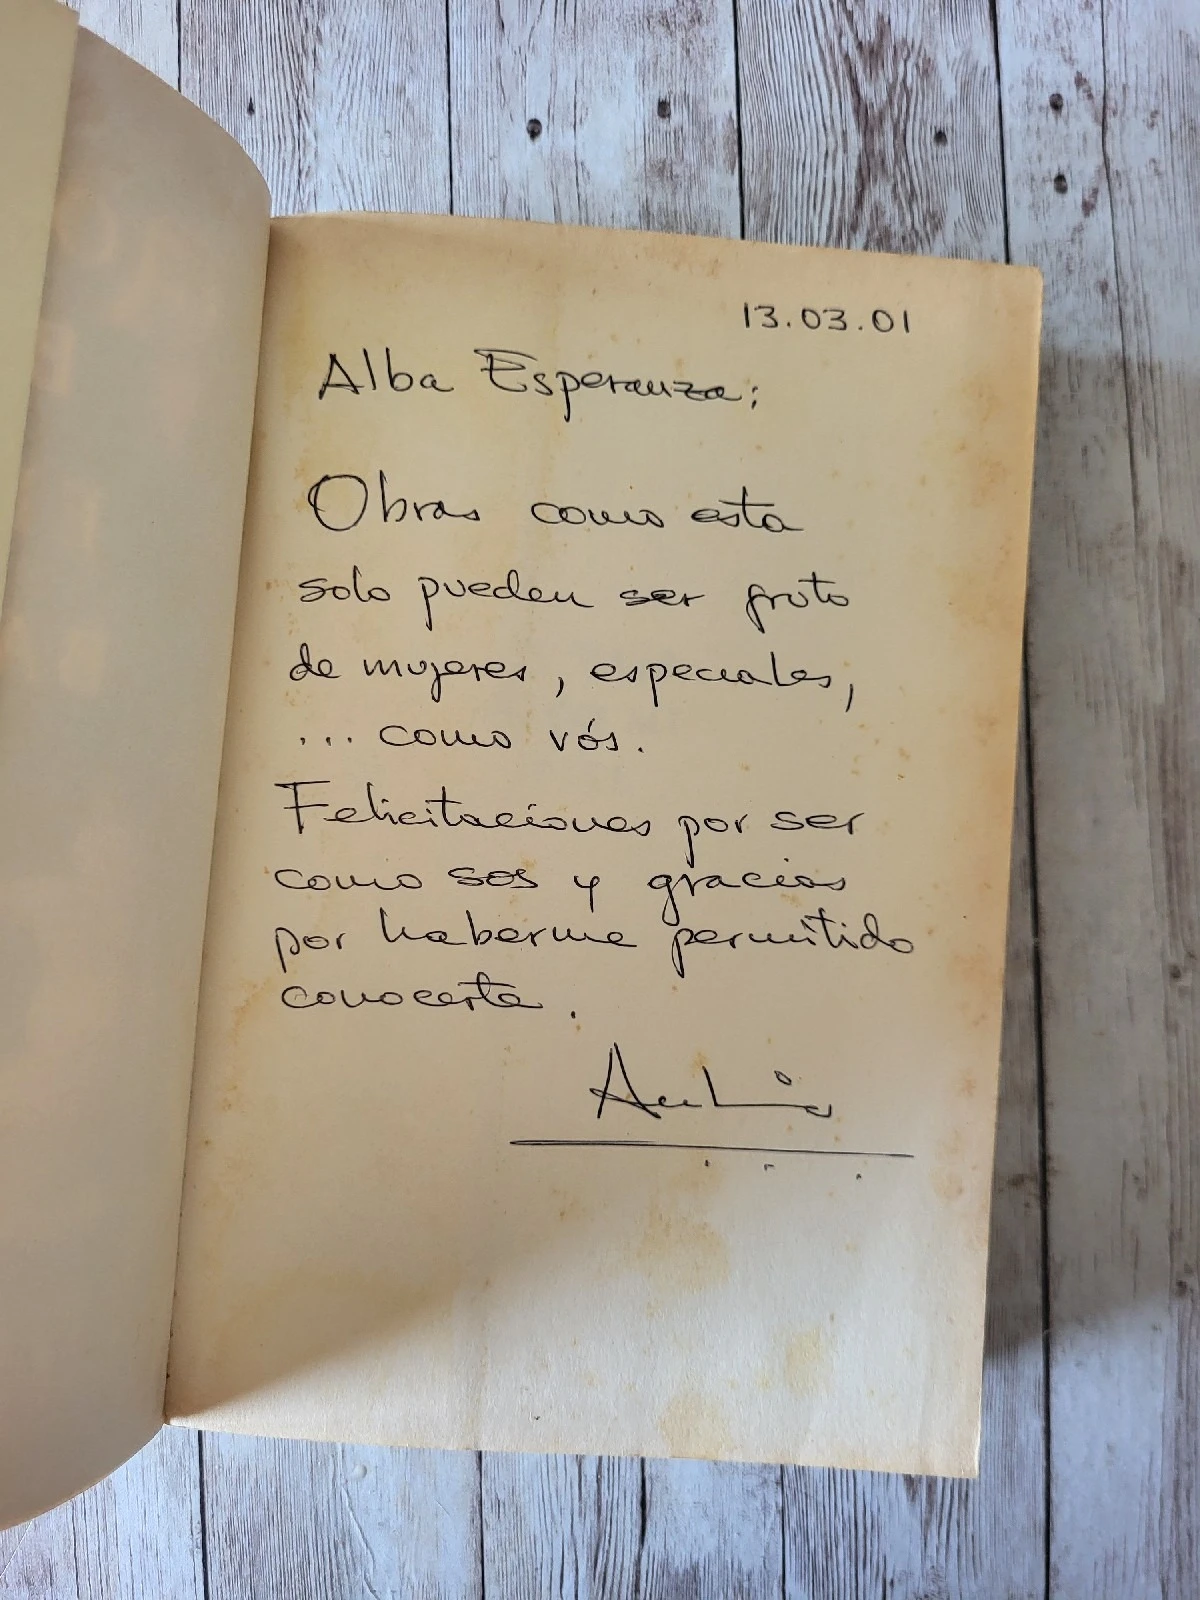 13.03.01
Alba Esperanza:
Obras como esta
solo pueden ser fruto
de mujeres, especiales,
... como vós.
Felicitaciones por ser
como sos y gracias
por haberme permitido
conocerte.